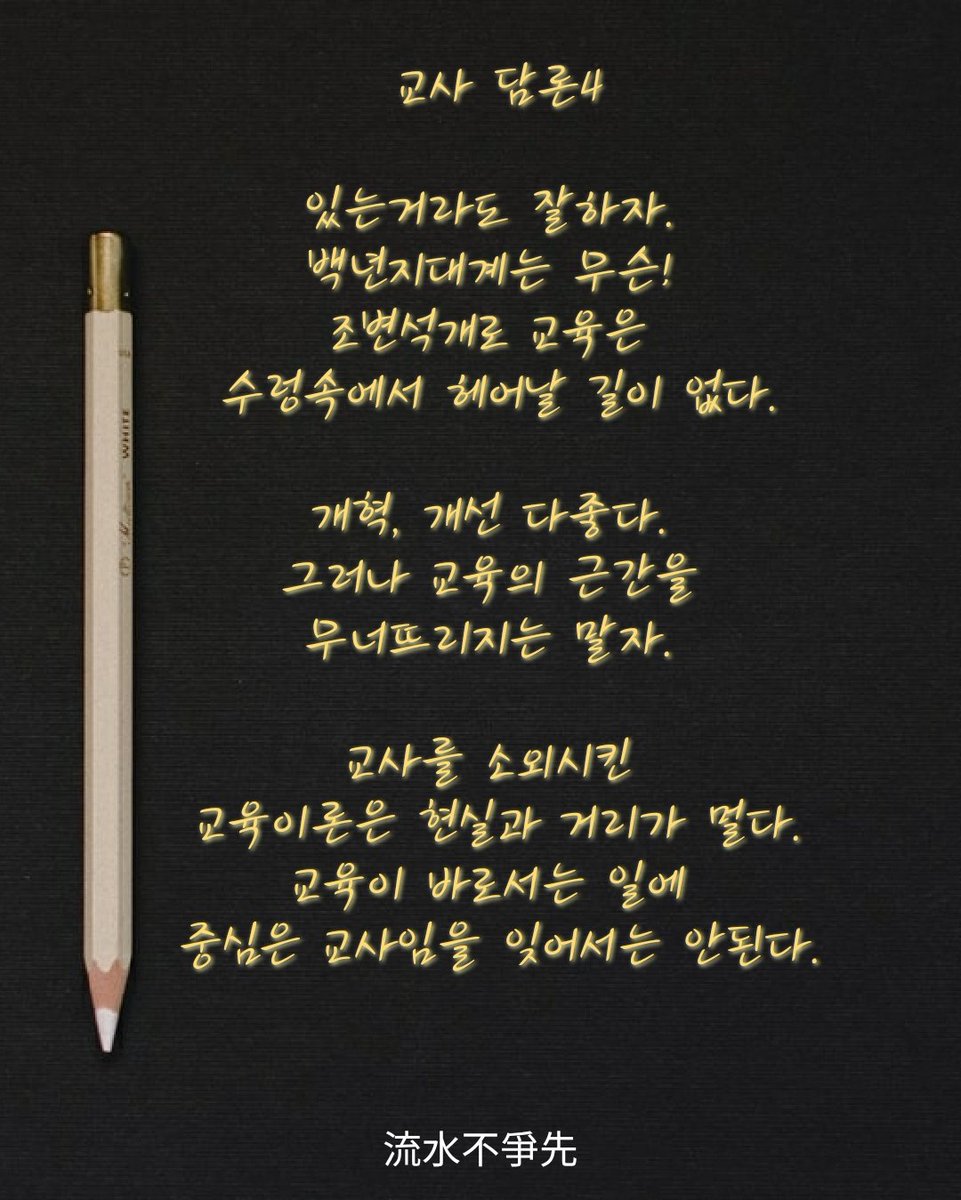 교사 담론4
있는거라도 잘하자.
백년지대계는 무슨!
조변석개로 교육은
수렁속에서 헤어날 길이 없다.
개혁, 개선 다좋다.
그러나 교육의 근간을
무너뜨리지는 말자.
교사를 소외시킨
교육이론은 현실과 거리가 멀다.
교육이 바로서는 일에
중심은 교사임을 잊어서는 안된다.
WHITE
流水不爭先